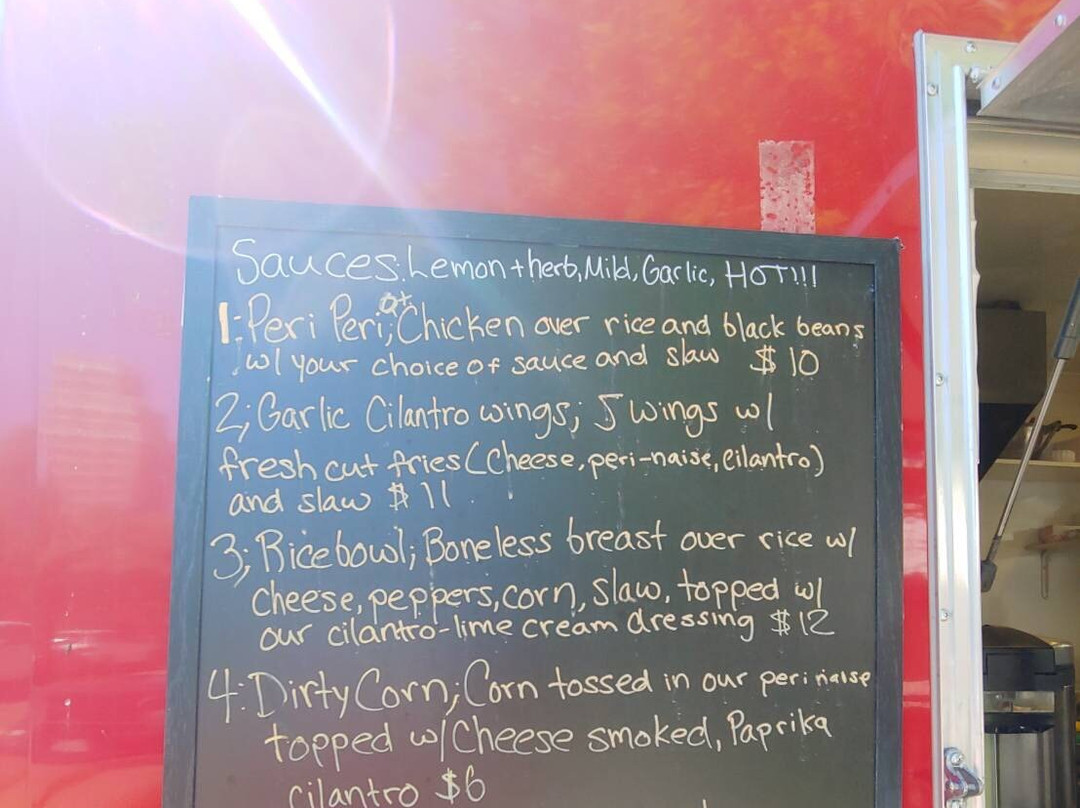 Sauces: Lemon + herb, Mild, Garlic, HOT!!!
1: Peri Peri; Chicken over rice and black beans
w/ your choice of sauce and slaw $10
2; Garlic Cilantro wings; 5 wings w/
fresh cut fries (Cheese, peri-naise, cilantro)
and slaw $11
3; Rice bowl; Boneless breast over rice w/
Cheese, peppers, corn, Slaw, topped w/
our cilantro-lime cream dressing $12
4: Dirty Corn; Corn tossed in our peri naise
topped w/ Cheese smoked, Paprika
cilantro $6